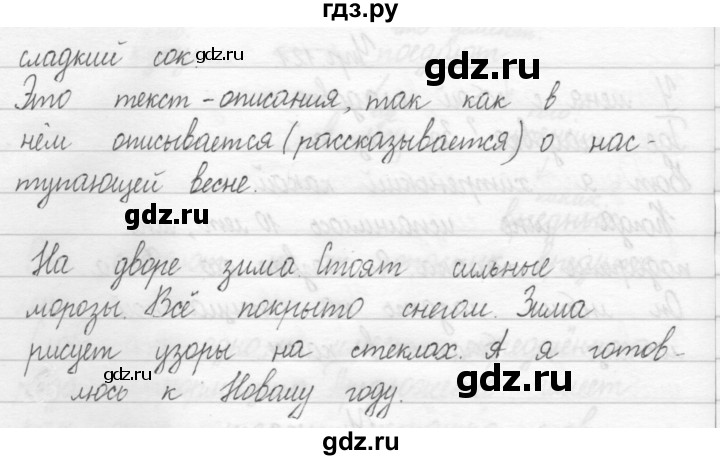 гдз.ру
сладкий сок.
gdz.ru
gdz.ru
Это текст-описания, так как в
нём описывается (рассказывается) о нас-
gdz.ru
тупающей весне.
gdz.ru
На дворе зима Стоят сильные
морозы. Всё покрыто снегом. Зима
рисует узоры на стеклах. А я готов-
gdz.ru
gdz.ru
люсь к Новому году.
gdz.ru